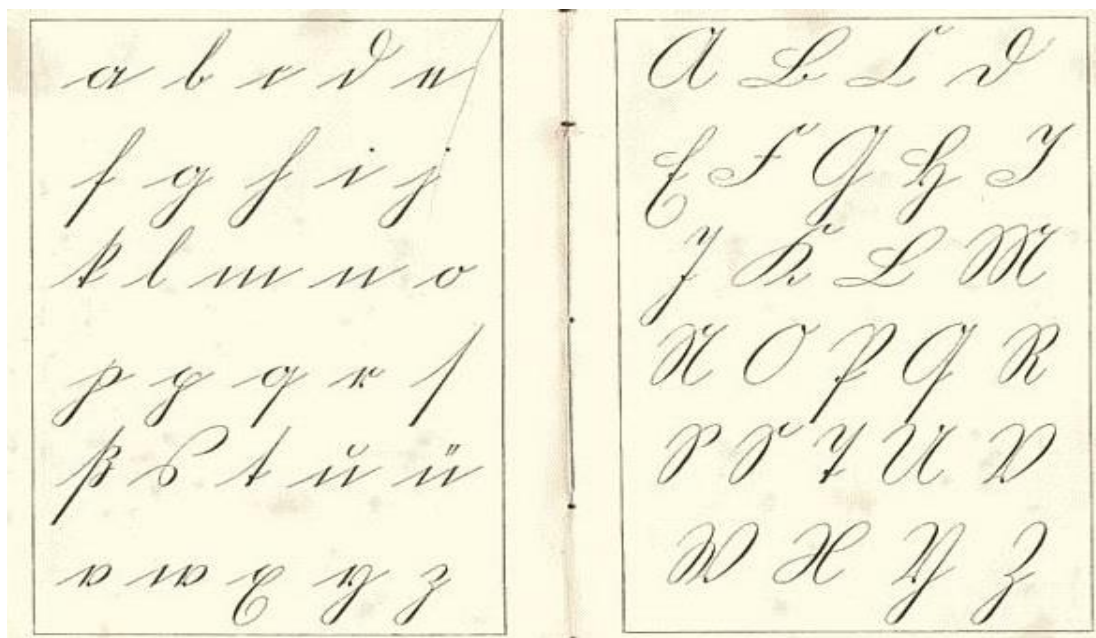 a b c d e
f g h i j
k l m n o
p p q r ſ
ß s t ŭ ü
v w x y z
A B C D
E F G H I
J K L M
N O P Q R
S S T U V
W X Y Z